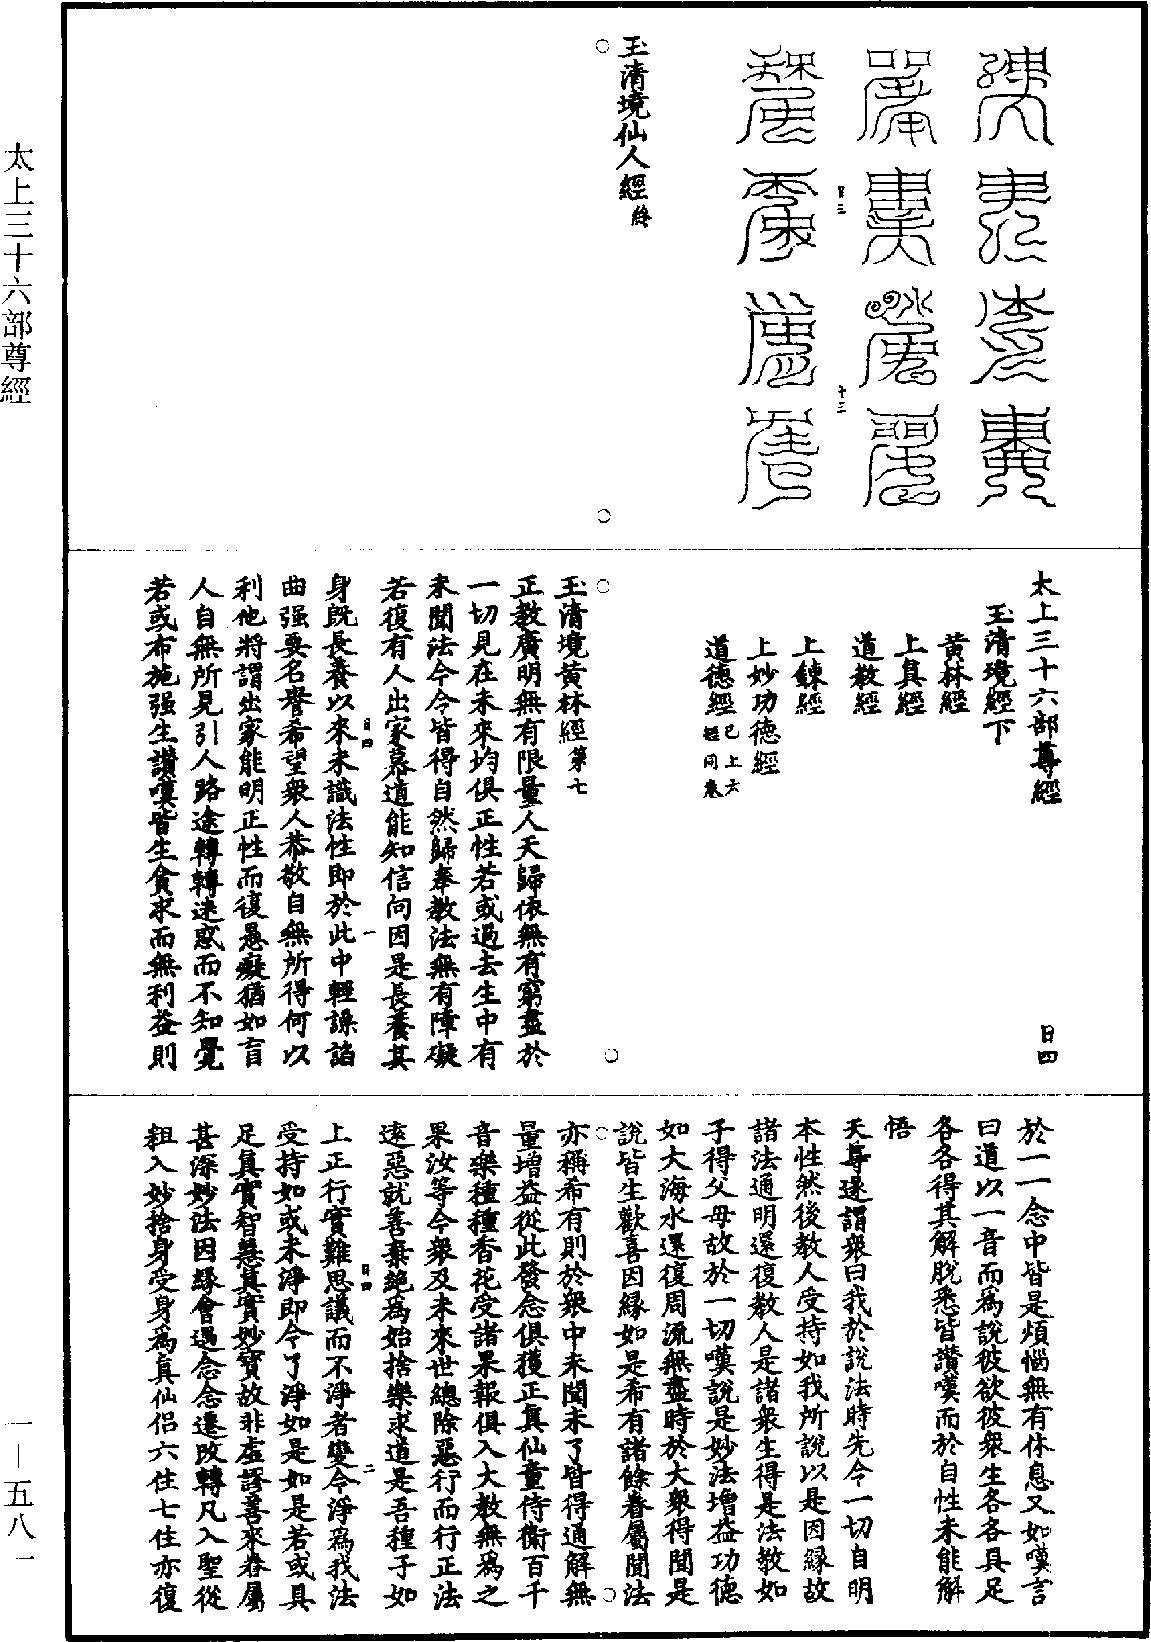 太上三十六部尊經
玉清境仙人經終
太上三十六部尊經
日四
玉清境經下
黃林經
上真經
道教經
上鍊經
上妙功德經
道德經已上六經同卷
玉清境黃林經第七
正教廣明無有限量人天歸依無有窮盡於
一切見在未來均俱正性若或過去生中有
未聞法令今皆得自然歸奉教法無有障礙
若復有人出家慕道能知信向因是長養其
身既長養以來未識法性即於此中輕譟諂
曲强要名譽希望衆人恭敬自無所得何以
利他將謂出家能明正性而復愚癡猶如盲
人自無所見引人路途轉轉迷惑而不知覺
若或布施强生讚嘆皆生貪求而無利益則
於一一念中皆是煩惱無有休息又如嘆言
曰道以一音而爲說彼欲彼衆生各各具足
各各得其解脫悉皆讚嘆而於自性未能解
悟
天尊遂謂衆曰我於說法時先令一切自明
本性然後教人受持如我所說以是因緣故
諸法通明還復教人是諸衆生得是法教如
子得父母故於一切嘆說是妙法增益功德
如大海水還復周流無盡時於大衆得聞是
說皆生歡喜因緣如是希有諸餘眷屬聞法
亦稱希有則於衆中未聞未了皆得通解無
量增益從此發念俱獲正真仙童侍衛百千
音樂種種香花受諸果報俱入大教無爲之
果汝等今衆及未來世總除惡行而行正法
遠惡就善棄絕爲始捨樂求道是吾種子如
上正行實難思議而不淨者變令淨爲我法
受持如或未淨即令了淨如是如是若或具
足真實智慧真實妙寶故非虛謬善來眷屬
甚深妙法因緣會遇念念遷改轉凡入聖從
粗入妙捨身受身爲真仙侶六住七住亦復
一—五八一